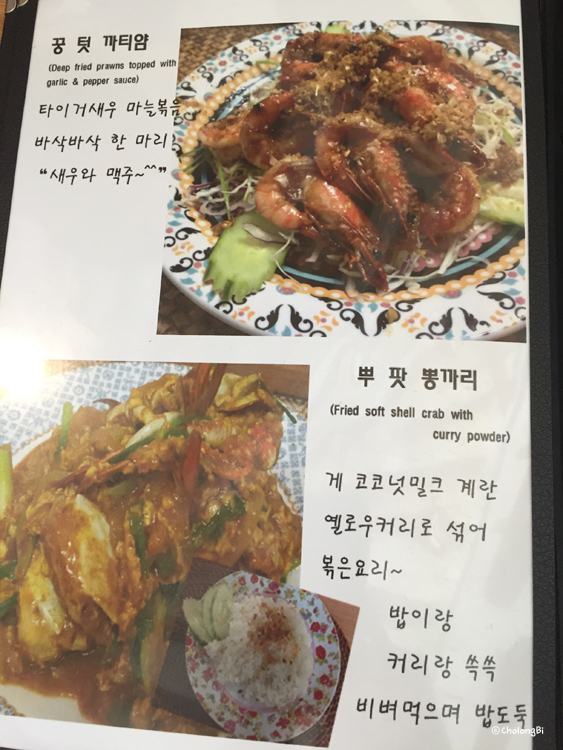 꿍 텃 까티얌
(Deep fried prawns topped with
garlic & pepper sauce)
타이거새우 마늘볶음
바삭바삭 한 마리!
“새우와 맥주~^^”
뿌 팟 뽕까리
(Fried soft shell crab with
curry powder)
게 코코넛밀크 계란
옐로우커리로 섞어
볶은요리~
밥이랑
커리랑 쓱쓱
비벼먹으며 밥도둑
©CholongBi